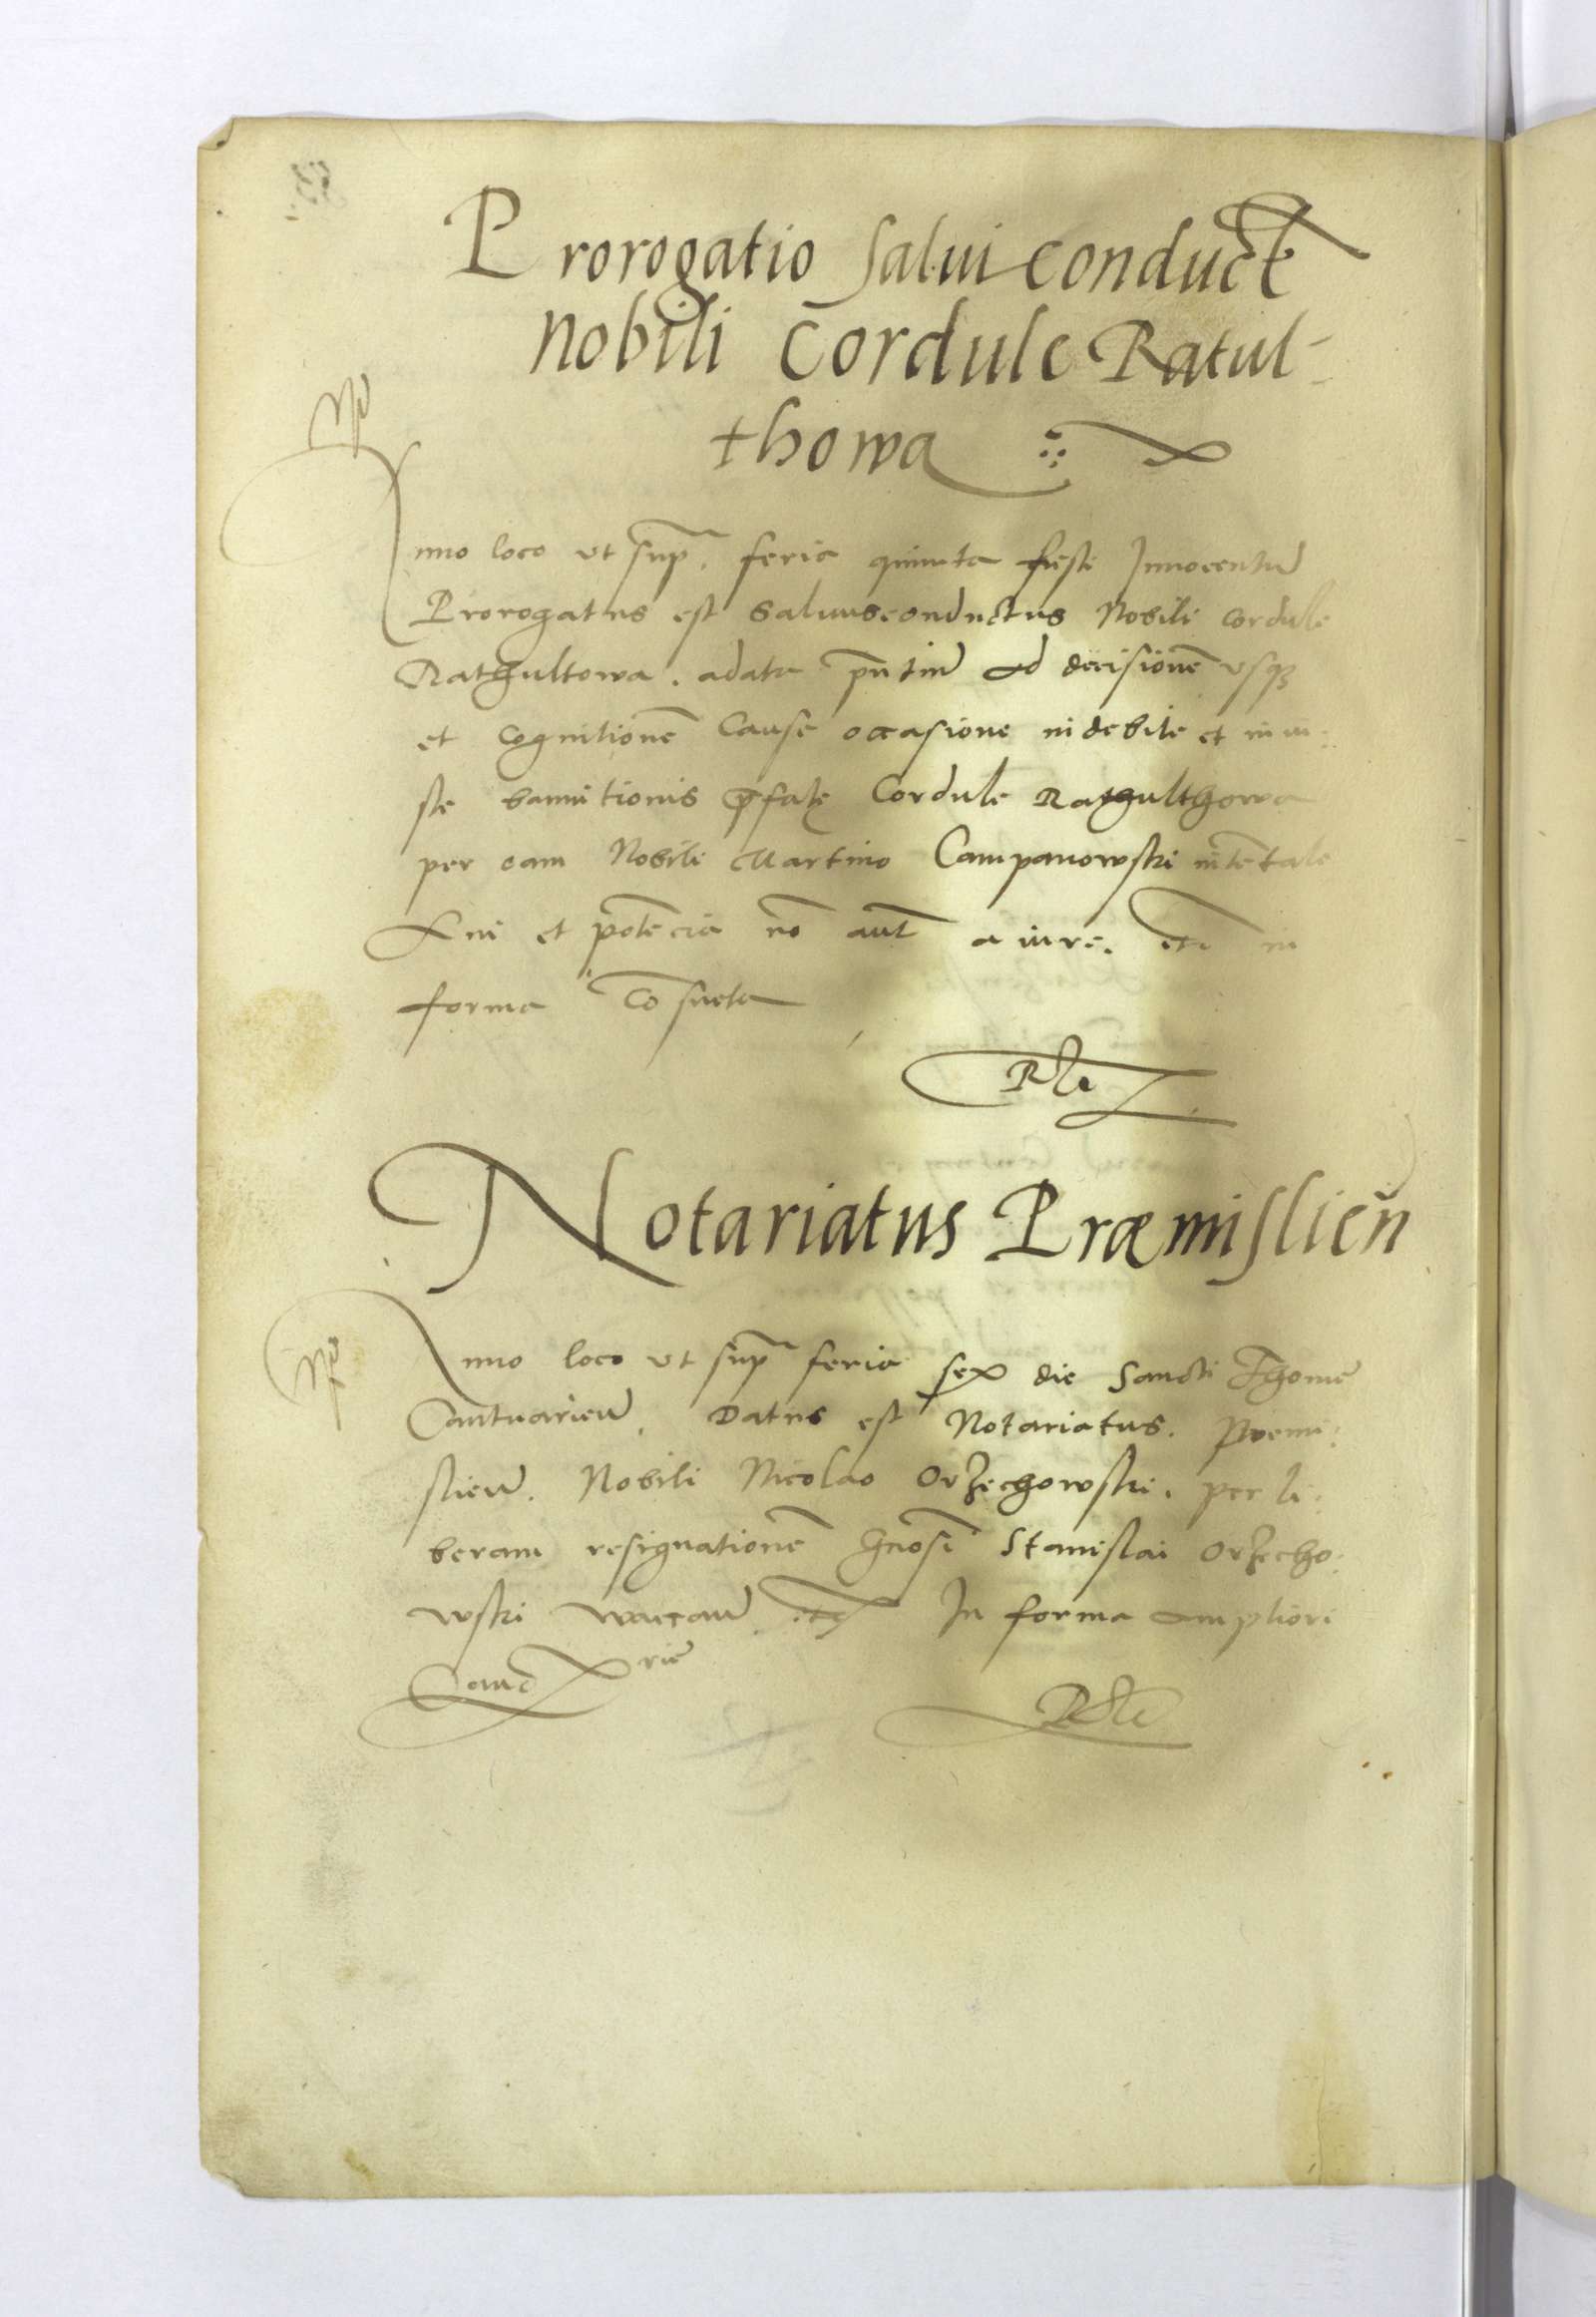 Prorogatio salui conduct
nobili Cordule Ratul-
thowa
Anno loco ut sup. feria quinta festi Innocentiu
Prorogatus est saluusconductus Nobili Cordule
Rathultowa. a data pntiu ad decisione usq
et cognitione cause occasione indebite et iniu:
ste bannitionis pfate Cordule Rathulthowa
per eam Nobili Martino Campanowski intetate
et potecia no aut a iure. etc in
forma cosueta
Notariatus Præmislien
Anno loco ut sup feria sex die Sancti Thome
Cantuarien. Datus est Notariatus. Premi:
slien. Nobili Nicolao Orzechowski. per li:
beram resignatione Gnosi Stanislai Orzecho:
wski vaccan etc In forma ampliori
Canc rie